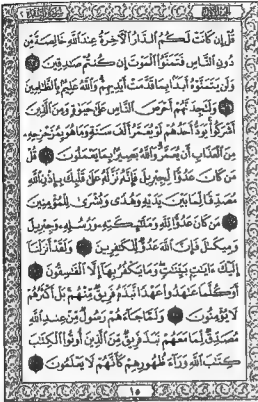 قُلْ إِن كَانَتْ لَكُمُ الدَّارُ الْآخِرَةُ عِندَ اللَّهِ خَالِصَةً مِّن
دُونِ النَّاسِ فَتَمَنَّوُا الْمَوْتَ إِن كُنتُمْ صَادِقِينَ
وَلَن يَتَمَنَّوْهُ أَبَدًا بِمَا قَدَّمَتْ أَيْدِيهِمْ وَاللَّهُ عَلِيمٌ بِالظَّالِمِينَ
وَلَتَجِدَنَّهُمْ أَحْرَصَ النَّاسِ عَلَىٰ حَيَوٰةٍ وَمِنَ الَّذِينَ
أَشْرَكُوا يَوَدُّ أَحَدُهُمْ لَوْ يُعَمَّرُ أَلْفَ سَنَةٍ وَمَا هُوَ بِمُزَحْزِحِهِ
مِنَ الْعَذَابِ أَن يُعَمَّرَ وَاللَّهُ بَصِيرٌ بِمَا يَعْمَلُونَ قُلْ
مَن كَانَ عَدُوًّا لِّجِبْرِيلَ فَإِنَّهُ نَزَّلَهُ عَلَىٰ قَلْبِكَ بِإِذْنِ اللَّهِ
مُصَدِّقًا لِّمَا بَيْنَ يَدَيْهِ وَهُدًى وَبُشْرَىٰ لِلْمُؤْمِنِينَ
مَن كَانَ عَدُوًّا لِّلَّهِ وَمَلَٰٓئِكَتِهِ وَرُسُلِهِ وَجِبْرِيلَ
وَمِيكَىٰلَ فَإِنَّ اللَّهَ عَدُوٌّ لِّلْكَافِرِينَ وَلَقَدْ أَنزَلْنَا
إِلَيْكَ ءَايَٰتٍ بَيِّنَٰتٍ وَمَا يَكْفُرُ بِهَا إِلَّا الْفَاسِقُونَ
أَوَكُلَّمَا عَٰهَدُوا عَهْدًا نَّبَذَهُ فَرِيقٌ مِّنْهُم بَلْ أَكْثَرُهُمْ
لَا يُؤْمِنُونَ وَلَمَّا جَاءَهُمْ رَسُولٌ مِّنْ عِندِ اللَّهِ
مُصَدِّقٌ لِّمَا مَعَهُمْ نَبَذَ فَرِيقٌ مِّنَ الَّذِينَ أُوتُوا الْكِتَٰبَ
كِتَٰبَ اللَّهِ وَرَاءَ ظُهُورِهِمْ كَأَنَّهُمْ لَا يَعْلَمُونَ
١٥